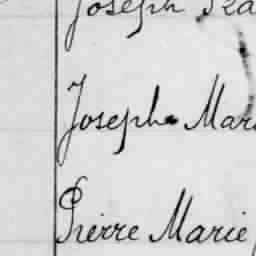 Joseph
Joseph Mar
Pierre Marie